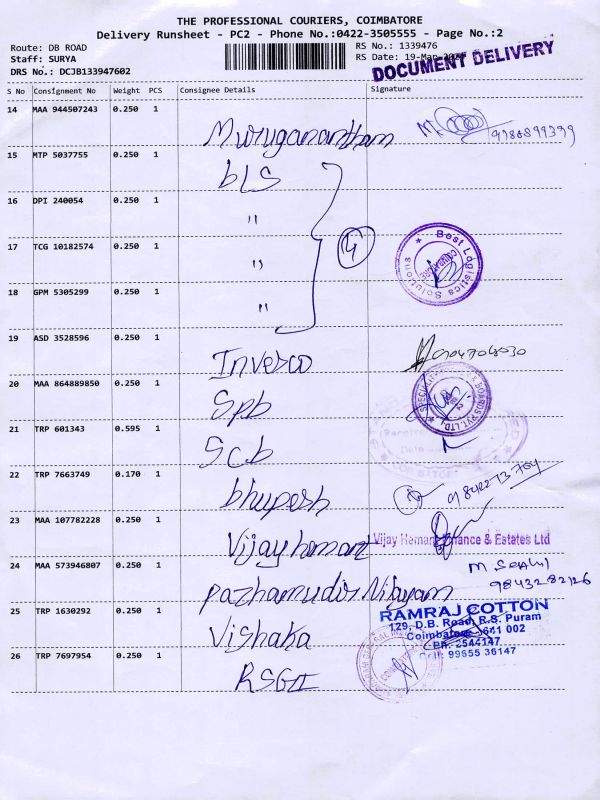 THE PROFESSIONAL COURIERS, COIMBATORE
Delivery Runsheet - PC2 - Phone No.:0422-3505555 - Page No.:2
Route: DB ROAD
Staff: SURYA
DRS No.: DCJB133947602
RS No.: 1339476
RS Date: 19-Mar
DOCUMENT DELIVERY
S No Consignment No Weight PCS Consignee Details Signature
14 MAA 944507243 0.250 1 Muruganantham
15 MTP 5037755 0.250 1 bLS
16 DPI 240054 0.250 1 "
17 TCG 10182574 0.250 1 " 4 Best Logistics Solutions
18 GPM 5305299 0.250 1 "
19 ASD 3528596 0.250 1 Invesco
20 MAA 864889850 0.250 1 Spb & BOARDS PVT. LTD.
21 TRP 601343 0.595 1 Scb
22 TRP 7663749 0.170 1 bhupesh
23 MAA 107782228 0.250 1 Vijay hemant Vijay Hemant Finance & Estates Ltd
24 MAA 573946807 0.250 1 pazhamudir Nilayam
25 TRP 1630292 0.250 1 Vishaka
RAMRAJ COTTON
129, D.B. Road, R.S. Puram
Coimbatore - 641 002
Ph: 2544147
Cell: 99655 36147
26 TRP 7697954 0.250 1 RSGI